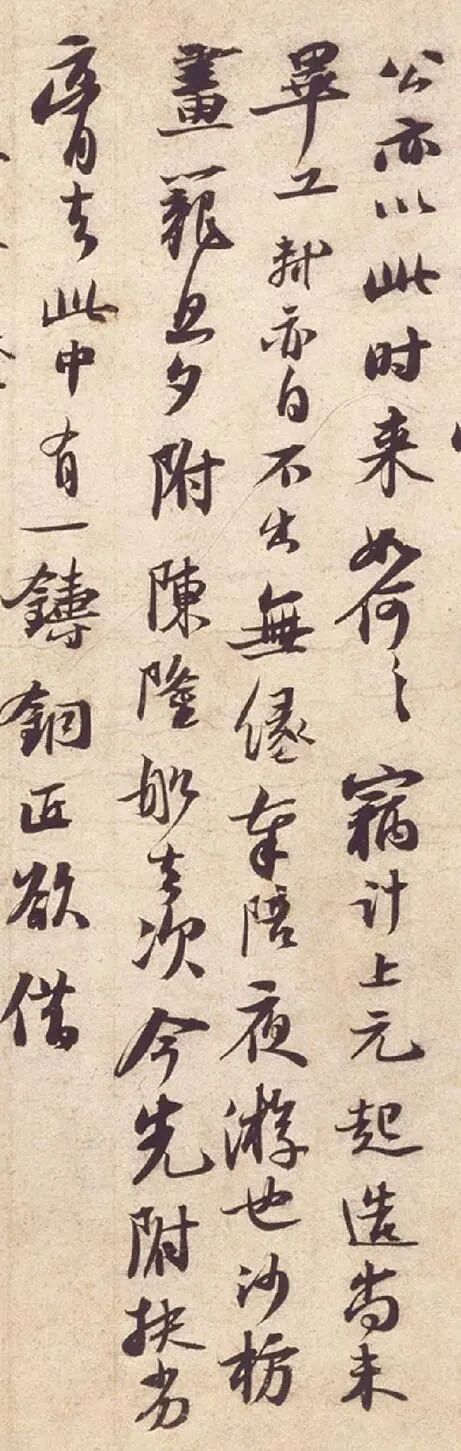 公亦以此时来如何々窃计上元起造尚未
畢工轼亦自不出無缘奉陪夜游也沙枋
畫籠旦夕附陳隆船去次今先附扶劣
膏去此中有一鑄銅匠欲借